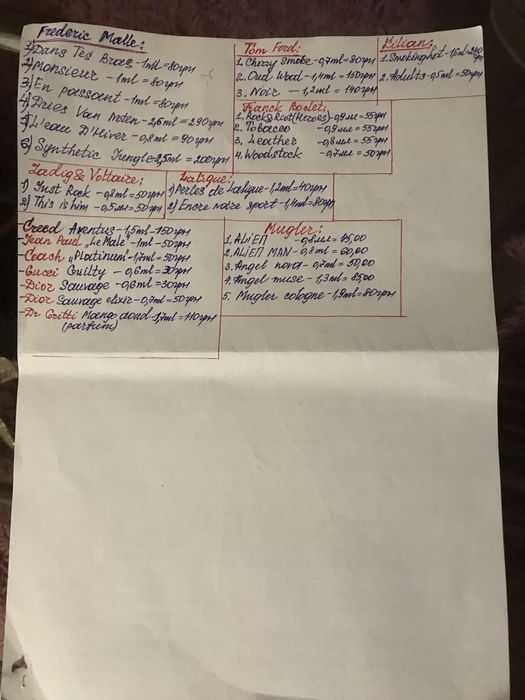 Frederic Malle:
1) Dans Tes Bras - 1ml = 80грн
2) Monsieur - 1ml = 80грн
3) En passant - 1ml = 80грн
4) Dries Van Noten - 2,6ml = 290грн
5) L'eau D'Hiver - 0,8ml = 90грн
6) Synthetic Jungle - 2,5ml = 200грн
Tom Ford:
1. Cherry smoke - 0,7ml = 80грн
2. Oud Wood - 1,4ml = 150грн
3. Noir - 1,2ml = 140грн
Kilian:
1. Smoking hot - 1,6ml = 240грн
2. Adults - 0,5ml = 50грн
Franck Boclet:
1. Rock & Riot (Heroes) - 0,9мл = 55грн
2. Tobacco - 0,9мл = 55грн
3. Leather - 0,8мл = 55грн
4. Woodstock - 0,7мл = 50грн
Zadig & Voltaire:
1) Just Rock - 0,8ml = 50грн
2) This is him - 0,5мл = 50грн
Lalique:
1) Perles de Lalique - 1,2ml = 40грн
2) Encre noire sport - 1,1ml = 80грн
Creed Aventus - 1,5ml = 150грн
- Jean Paul „Le Male" - 1ml - 50грн
- Coach „Platinum" - 1,7ml = 50грн
- Gucci Guilty - 0,6ml = 30грн
- Dior Sauvage - 0,6ml = 30грн
- Dior Sauvage elixir - 0,7ml = 50грн
- Dr Gritti Mango aoud - 1,7ml = 110грн
(parfum)
Mugler:
1. ALIEП - 0,8мл = 45,00
2. ALIEП MAN - 0,8ml = 60,00
3. Angel nova - 0,7ml = 50,00
4. Angel muse - 1,3ml = 85,00
5. Mugler cologne - 1,9ml = 80грн